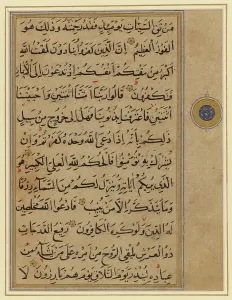 ومن تق السيئات يومئذ فقد رحمته وذلك هو
الفوز العظيم ان الذين كفروا ينادون لمقت الله
اكبر من مقتكم انفسكم اذ تدعون الى الايمان
فتكفرون قالوا ربنا امتنا اثنتين واحييتنا
اثنتين فاعترفنا بذنوبنا فهل الى خروج من سبيل
ذلكم بانه اذا دعي الله وحده كفرتم وان
يشرك به تؤمنوا فالحكم لله العلي الكبير هو
الذي يريكم اياته وينزل لكم من السماء رزقا
وما يتذكر الا من ينيب فادعوا الله مخلصين
له الدين ولو كره الكافرون رفيع الدرجات
ذو العرش يلقي الروح من امره على من يشاء من
عباده لينذر يوم التلاق يوم هم بارزون لا